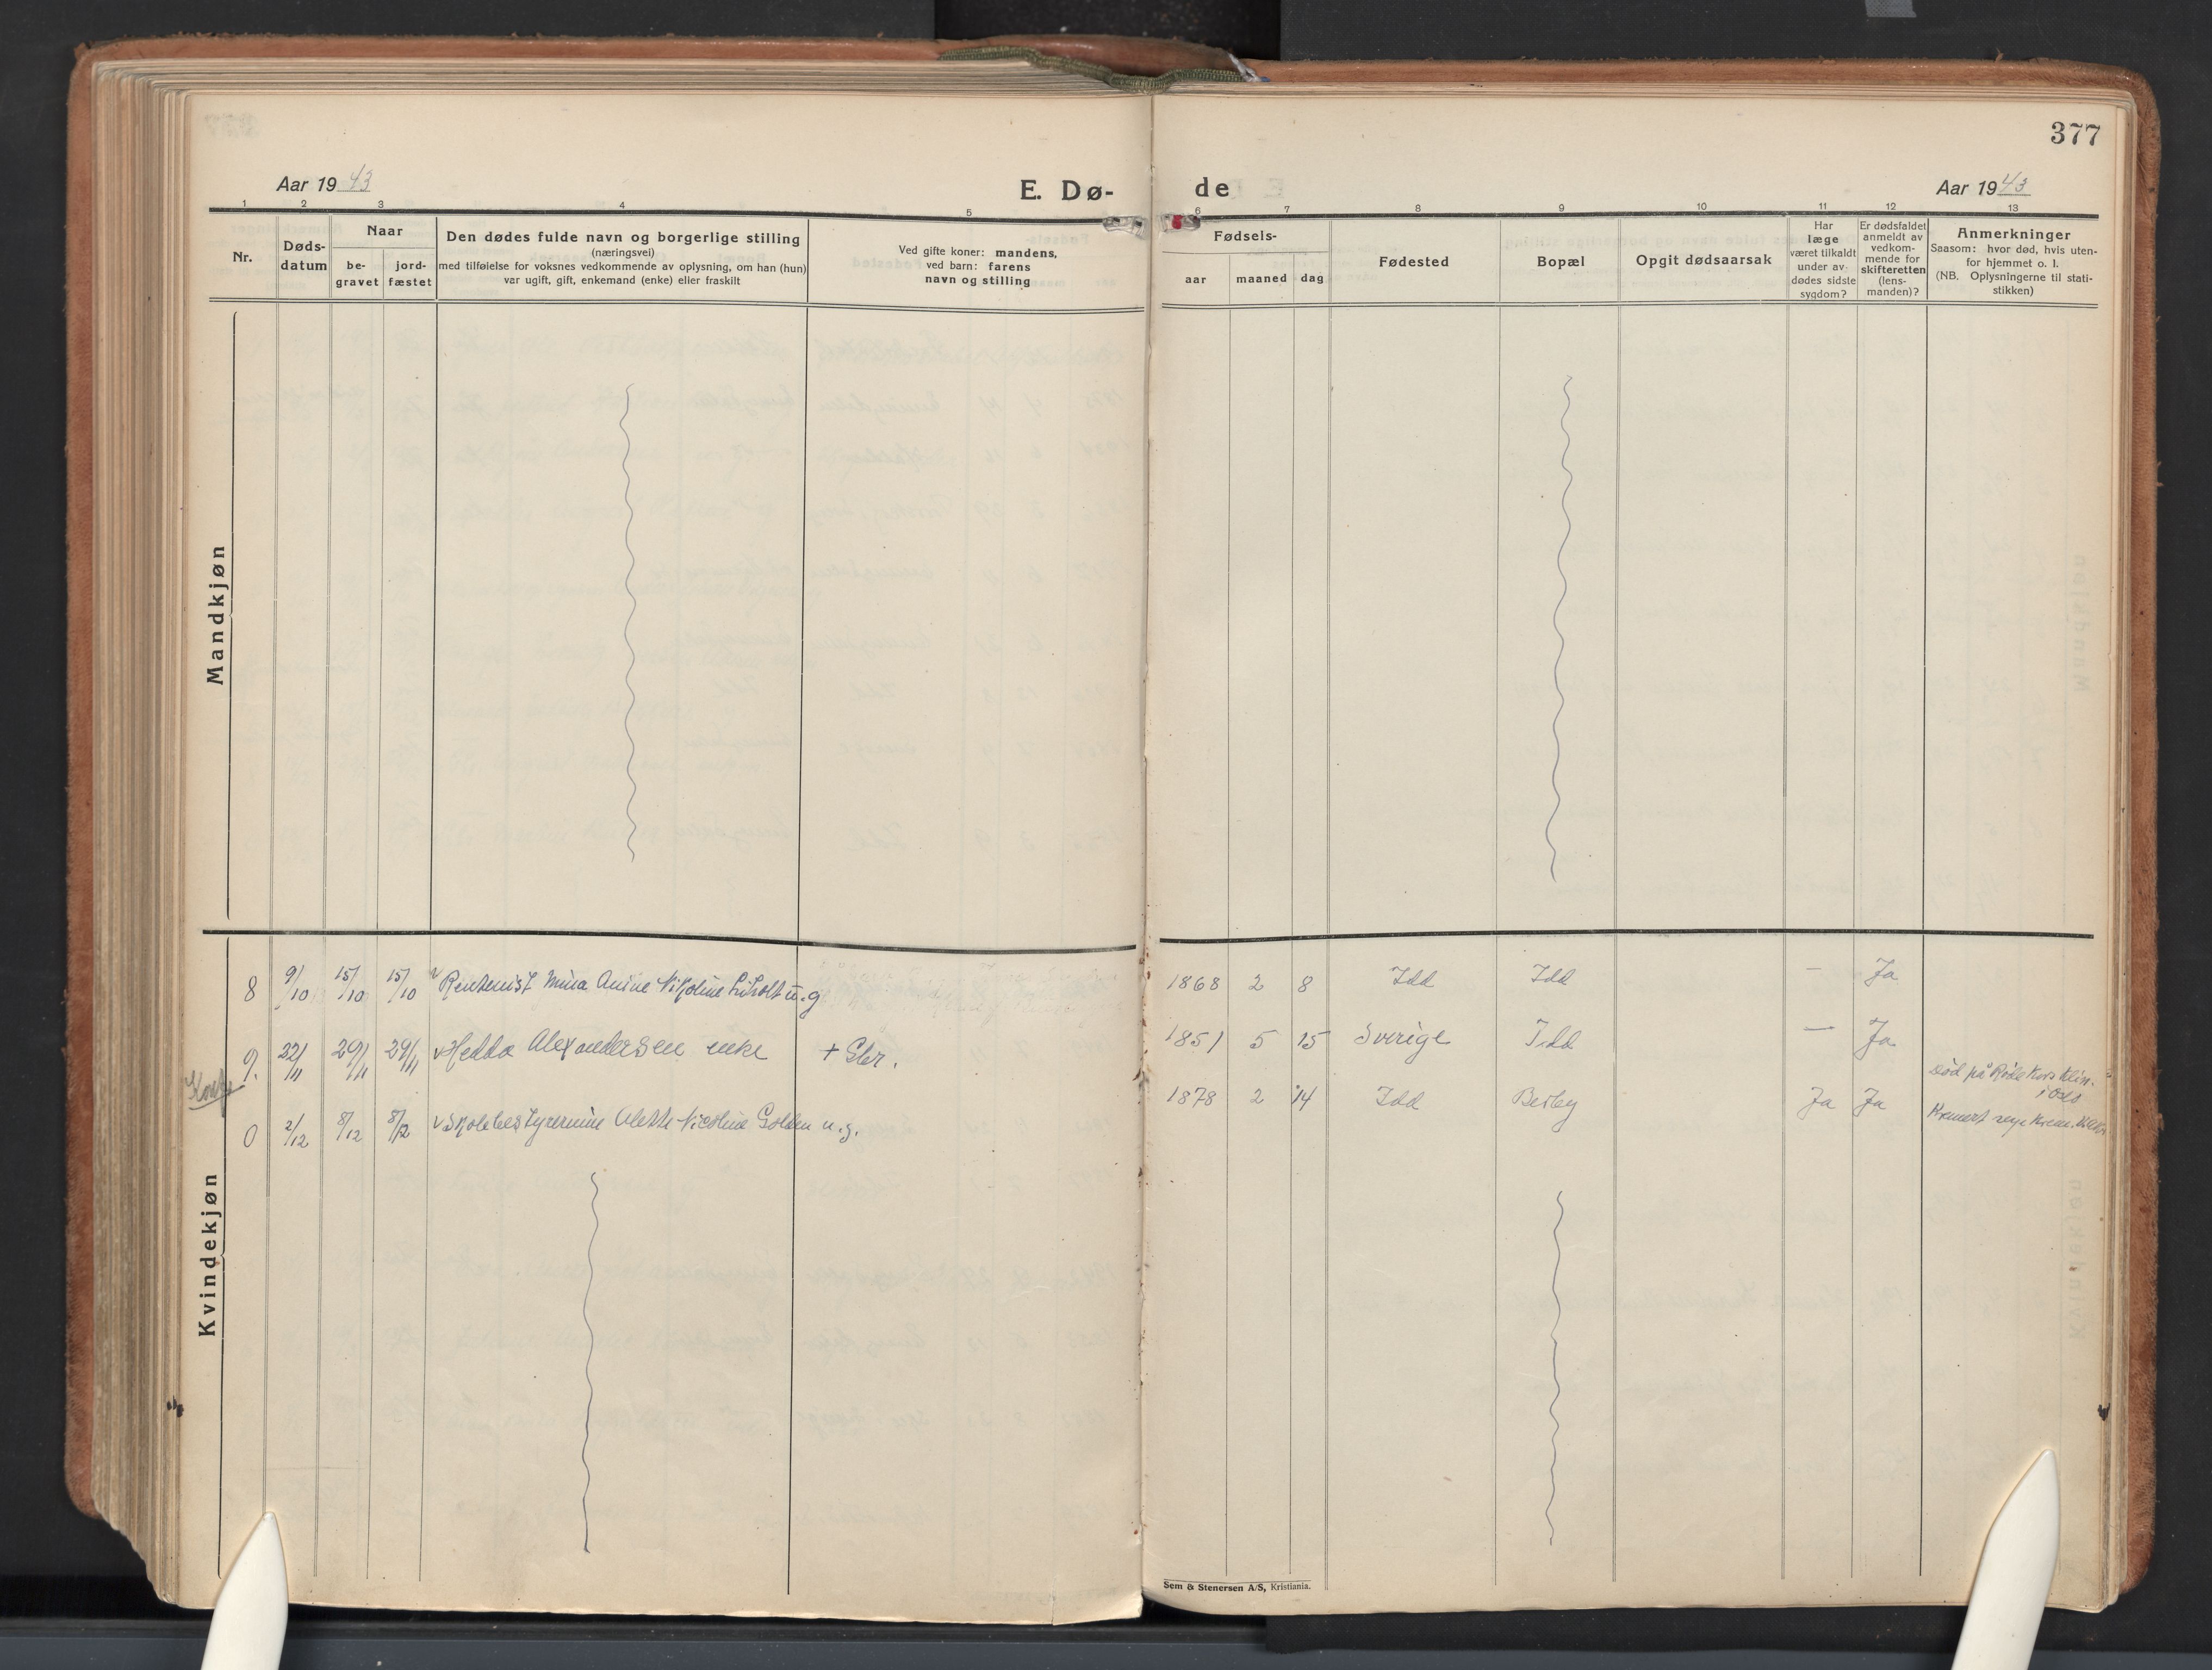 377
Aar 1943
E. Dø-
de
Aar 1943
1 2 3 4 5 6 7 8 9 10 11 12 13
Nr.
Døds-
datum
Naar
be-
gravet
jord-
fæstet
Den dødes fulde navn og borgerlige stilling
(næringsvei)
med tilføielse for voksnes vedkommende av oplysning, om han (hun)
var ugift, gift, enkemand (enke) eller fraskilt
Ved gifte koner: mandens,
ved barn: farens
navn og stilling
Fødsels-
aar maaned dag
Fødested
Bopæl
Opgit dødsaarsak
Har
læge
været tilkaldt
under av-
dødes sidste
sygdom?
Er dødsfaldet
anmeldt av
vedkom-
mende for
skifteretten
(lens-
manden)?
Anmerkninger
Saasom: hvor død, hvis uten-
for hjemmet o. l.
(NB. Oplysningerne til stati-
stikken)
Mandkjøn
Kvindekjøn
8 9/10 15/10 15/10 Rentenist Mina Anine Nikoline u.g 1868 2 8 Idd Idd — Ja
9. 22/11 29/11 29/11 Hedda Alexandersen enke + Gbr. 1851 5 15 Sverige Idd — Ja
0 2/12 8/12 8/12 Skolebestyrerinne Alette Nicoline Golden u.g. 1878 2 14 Idd Berby Ja Ja
Død på Røde Kors Klin.
i Oslo
Kremert
Sem & Stenersen A/S, Kristiania.